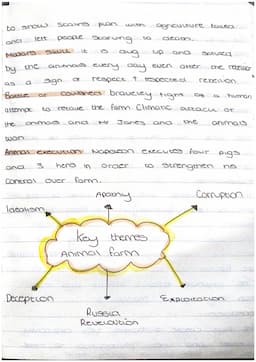 to show Stalins plan with agriculture failed
and left people starving to death.
Majors skull it is dug up and saluted
by the animals every day even after the rebellion
as a sign of respect + respected rebellion
Battle of cowshed bravely fight of a human
attempt to retake the farm. Climatic attack of
the animals and Mr Jones and the animals
won
Animal execution Napoleon executes four pigs
and 3 hens in order to strengthen his
control over farm.
Apathy
Corruption
Idealism
Key themes
Animal farm
Deception
Exploitation
Russia
Revelaution